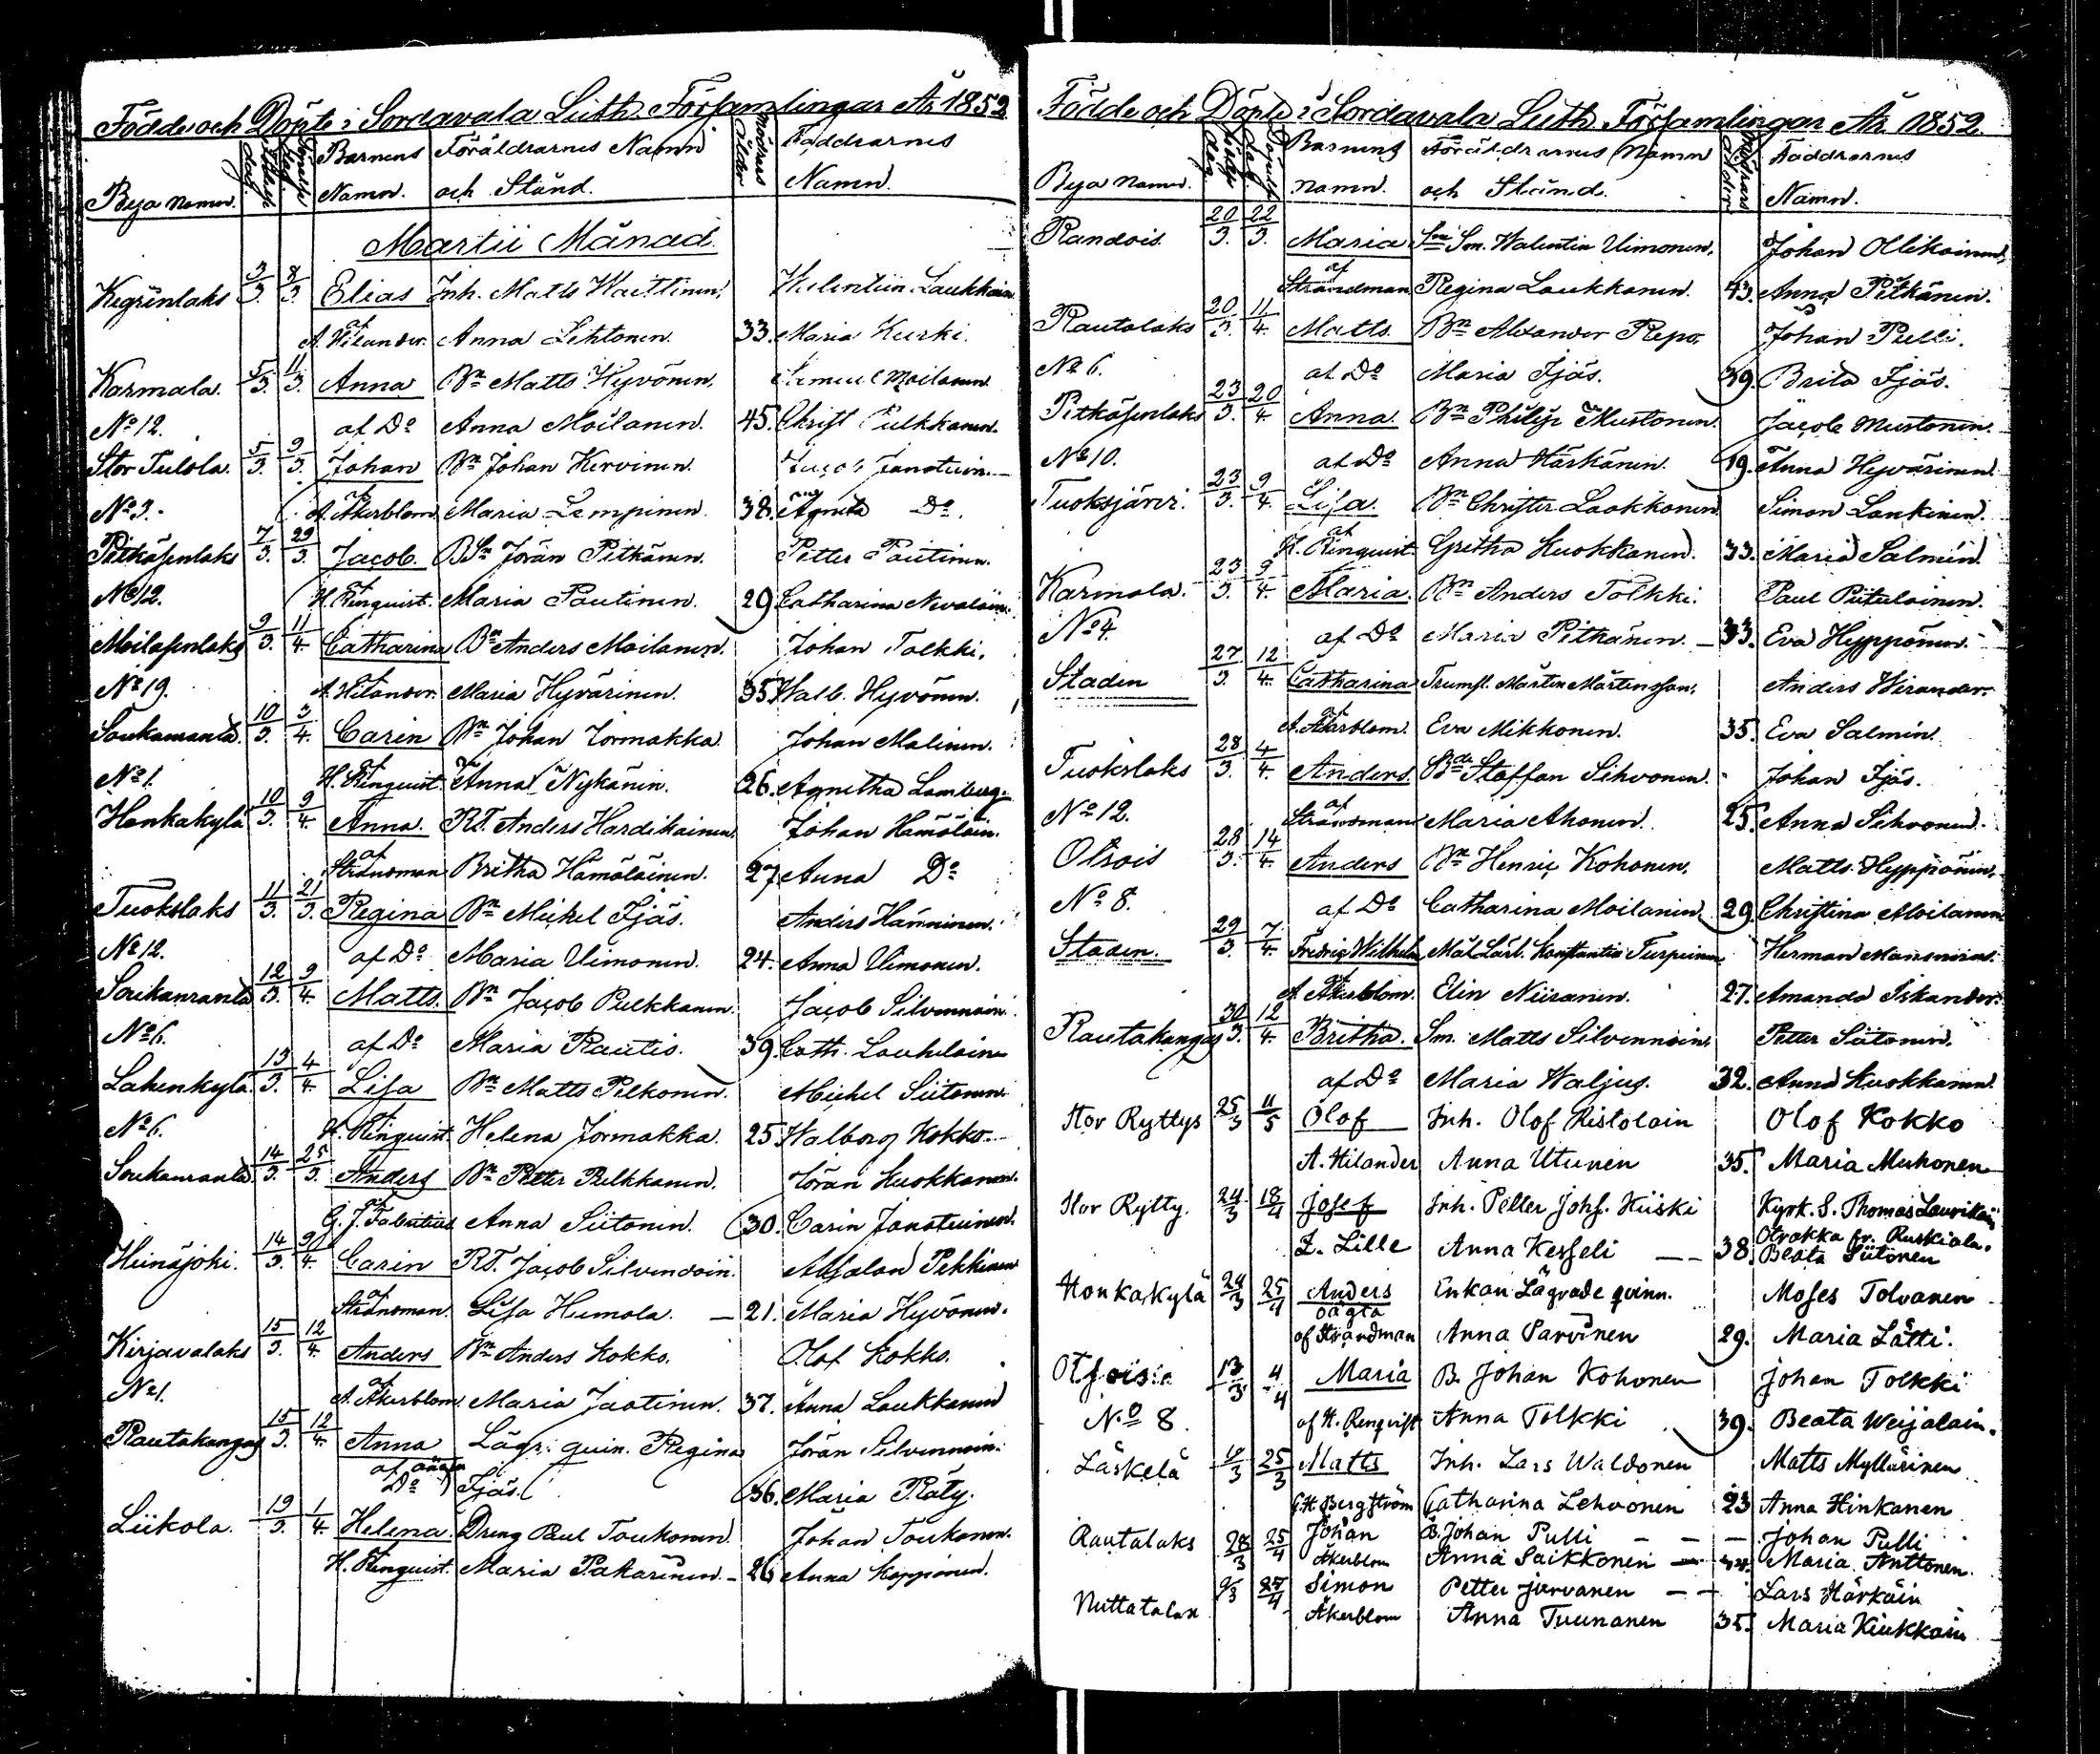 Födde och Döpte i Sordavala Luth. Församlingar År 1852
Bya namn. Barnens Namn. Föräldrarnes Namn och Stånd. Mödrars ålder Faddrarnes Namn.
Martii Månad.
Kegrinlaks 3/3. 8/3. Elias Inh. Matts Waittinen, Walentin Laukkain
af A. Hilander. Anna Lehtonen. 33. Maria Kurki.
Karmala. 5/3. 11/3. Anna Bn Matts Hyvönen. Samuel Moilanen
No 12. af Do Anna Moilanen. 45. Christ Pulkkanen.
Stor Tulola. 5/3. 9/3. Johan Bn Johan Kervinen. Jacob Janatuin
No 3. af A. Åkerblom Maria Lempinen. 38. Agneta Do.
Pitkäsenlaks 7/3. 29/3. Jacob. BSn Jöran Pitkänen. Petter Pautinen.
No 12. af H. Renquist. Maria Pautinen. 29 Catharina Nevalain.
Moilasenlaks 9/3. 11/4. Catharina Bn Anders Moilanen. Johan Tolkki.
No 19. A. Hilander. Maria Hyvärinen. 35 Walb. Hyvönen.
Soukanranta. 10/3. 3/4. Carin Bn Johan Jormakka. Johan Malinen.
No 1. af H. Renquist. Anna Nykänin. 26. Agnetha Lamberg.
Honkakylä 10/3. 9/4. Anna. RT. Anders Hardikainen, Johan Hämäläin.
af Strandman Britha Hämäläinen. 27 Anna Do
Tuokslaks 11/3. 21/3. Regina Bn Mickel Ijäs. Anders Hämninen.
No 12. af Do Maria Uimonen. 24. Anna Uimonen.
Soukanranta 12/3. 9/4. Matts. Bn Jacob Pulkkanen. Jacob Silvennoin.
No 6. af Do Maria Rautis. 39 Cath. Louhelainen
Lahenkylä. 13/3. 4/4. Lisa Bn Matts Pelkonen. Mickel Siitonen.
No 6. af H. Renquist. Helena Jormakka. 25 Walborg Kokko.
Soukanranta 14/3. 25/3. Anders Bn Petter Pulkkanen. Jöran Kuokkanen.
af G. J. Fabritius Anna Siitonen. 30. Carin Janatuinen.
Heinäjoki. 14/3. 9/4. Carin RT. Jacob Silvendoin. Absalon Pekkinen
af Strandman. Lisa Humola. — 21. Maria Hyvönen.
Kirjavalaks 15/3. 12/4. Anders Bn Anders Kokko. Olof Kokko.
No 1. af A. Åkerblom. Maria Jaatinen. 37. Anna Laukkanen
Rautakangas 15/3. 12/4. Anna Lägr. quin. Regina Jöran Silvennoin.
oägta af Do Ijäs. 36. Maria Räty.
Liikola. 19/3. 1/4. Helena. Dreng Paul Toukonen. Johan Toukonen.
H. Renquist. Maria Pakarinen. - 26 Anna Kopponen.
Födde och Döpte i Sordavala Luth. Församlingar År. 1852.
Bya namn. Barnens namn. Föräldrarnes Namn och Stånd. Mödrars ålder Faddrarnes Namn.
Randois. 20/3. 22/3. Maria Sm. Walentin Uimonen, Johan Ollikainen,
af Strandman Regina Laukkanen. 43. Anna Pitkänen.
Rautalaks 20/3. 11/4. Matts. Bn Alexander Repo, Johan Pulli.
No 6. af Do Maria Ijäs. 39. Brita Ijäs.
Pitkäsenlaks 23/3. 20/4. Anna. Bn Philip Mustonen. Jacob Mustonen.
No 10. af Do Anna Härkänen. 19. Anna Hyvärinen
Tuoksjärvi. 23/3. 9/4. Lisa. Bn Christer Laakkonen Simon Lankinen.
af H. Renquist. Gretha Kuokkanen. 33. Maria Salmén.
Karmala. 23/3. 9/4. Maria. Bn Anders Tolkki. Paul Piitulainen.
No 4. af Do Maria Pitkänen. — 33. Eva Hyppönen.
Staden 27/3. 12/4. Catharina Trumsl. Mårten Mårtensson, Anders Wirander.
af A. Åkerblom. Eva Mikkonen. 35. Eva Salmin.
Tuokslaks 28/3. 4/4. Anders. Staffan Sihvonen. Johan Ijäs.
No 12. af Strandman Maria Ahonen. 25. Anna Sihvonen.
Otsois 28/3. 14/4. Anders Bn Henric Kohonen. Matts. Hyppönen.
No 8. af Do Catharina Moilanen. 29. Christina Moilanen
Staden. 29/3. 7/4. Fredric Wilhelm Mål. Lärl. Konstantin Turpeinen Herman Manninen.
af A. Åkerblom. Elin Niiranen. 27. Amanda Iskander.
Rautakangas 30/3. 12/4. Britha. Sm. Matts Silvennoin, Petter Siitonen.
af Do Maria Waljus. 32. Anna Kuokkanen.
Stor Ryttys 25/3 11/5 Olof Inh. Olof Ristolain Olof Kokko
A. Hilander Anna Utunen 35. Maria Muhonen
Stor Rytty. 24/3 18/4 Josef Inh. Petter Johs. Kiiski Kyrk. S. Thomas Laurikain
Z. Lille Anna Kesseli — 38 Otrakka fr. Ruskiala. Beata Siitonen
Honkakylä 24/3 25/4 Anders Enkan Lägrade qvinn. Moses Tolvanen
oägta af Strandman Anna Parvinen 29. Maria Lätti.
Otsois 13/3 4/4 Maria B. Johan Kohonen Johan Tolkki
No 8. af H. Renqvist Anna Tolkki 39. Beata Weijalain.
Läskelä 10/3 25/3 Matts Inh. Lars Waldonen Matts Myllärinen
G. H. Bergström Catharina Lehvonen 23 Anna Hinkanen
Rautalaks 28/3 25/4 Johan B. Johan Pulli — — — Johan Pulli
Åkerblom Anna Saikkonen — 34. Maria Anttonen
Nuttatalax 9/3 25/4 Simon Petter Jurvanen — Lars Härkäin
Åkerblom Anna Tuunanen 35. Maria Kiukkain